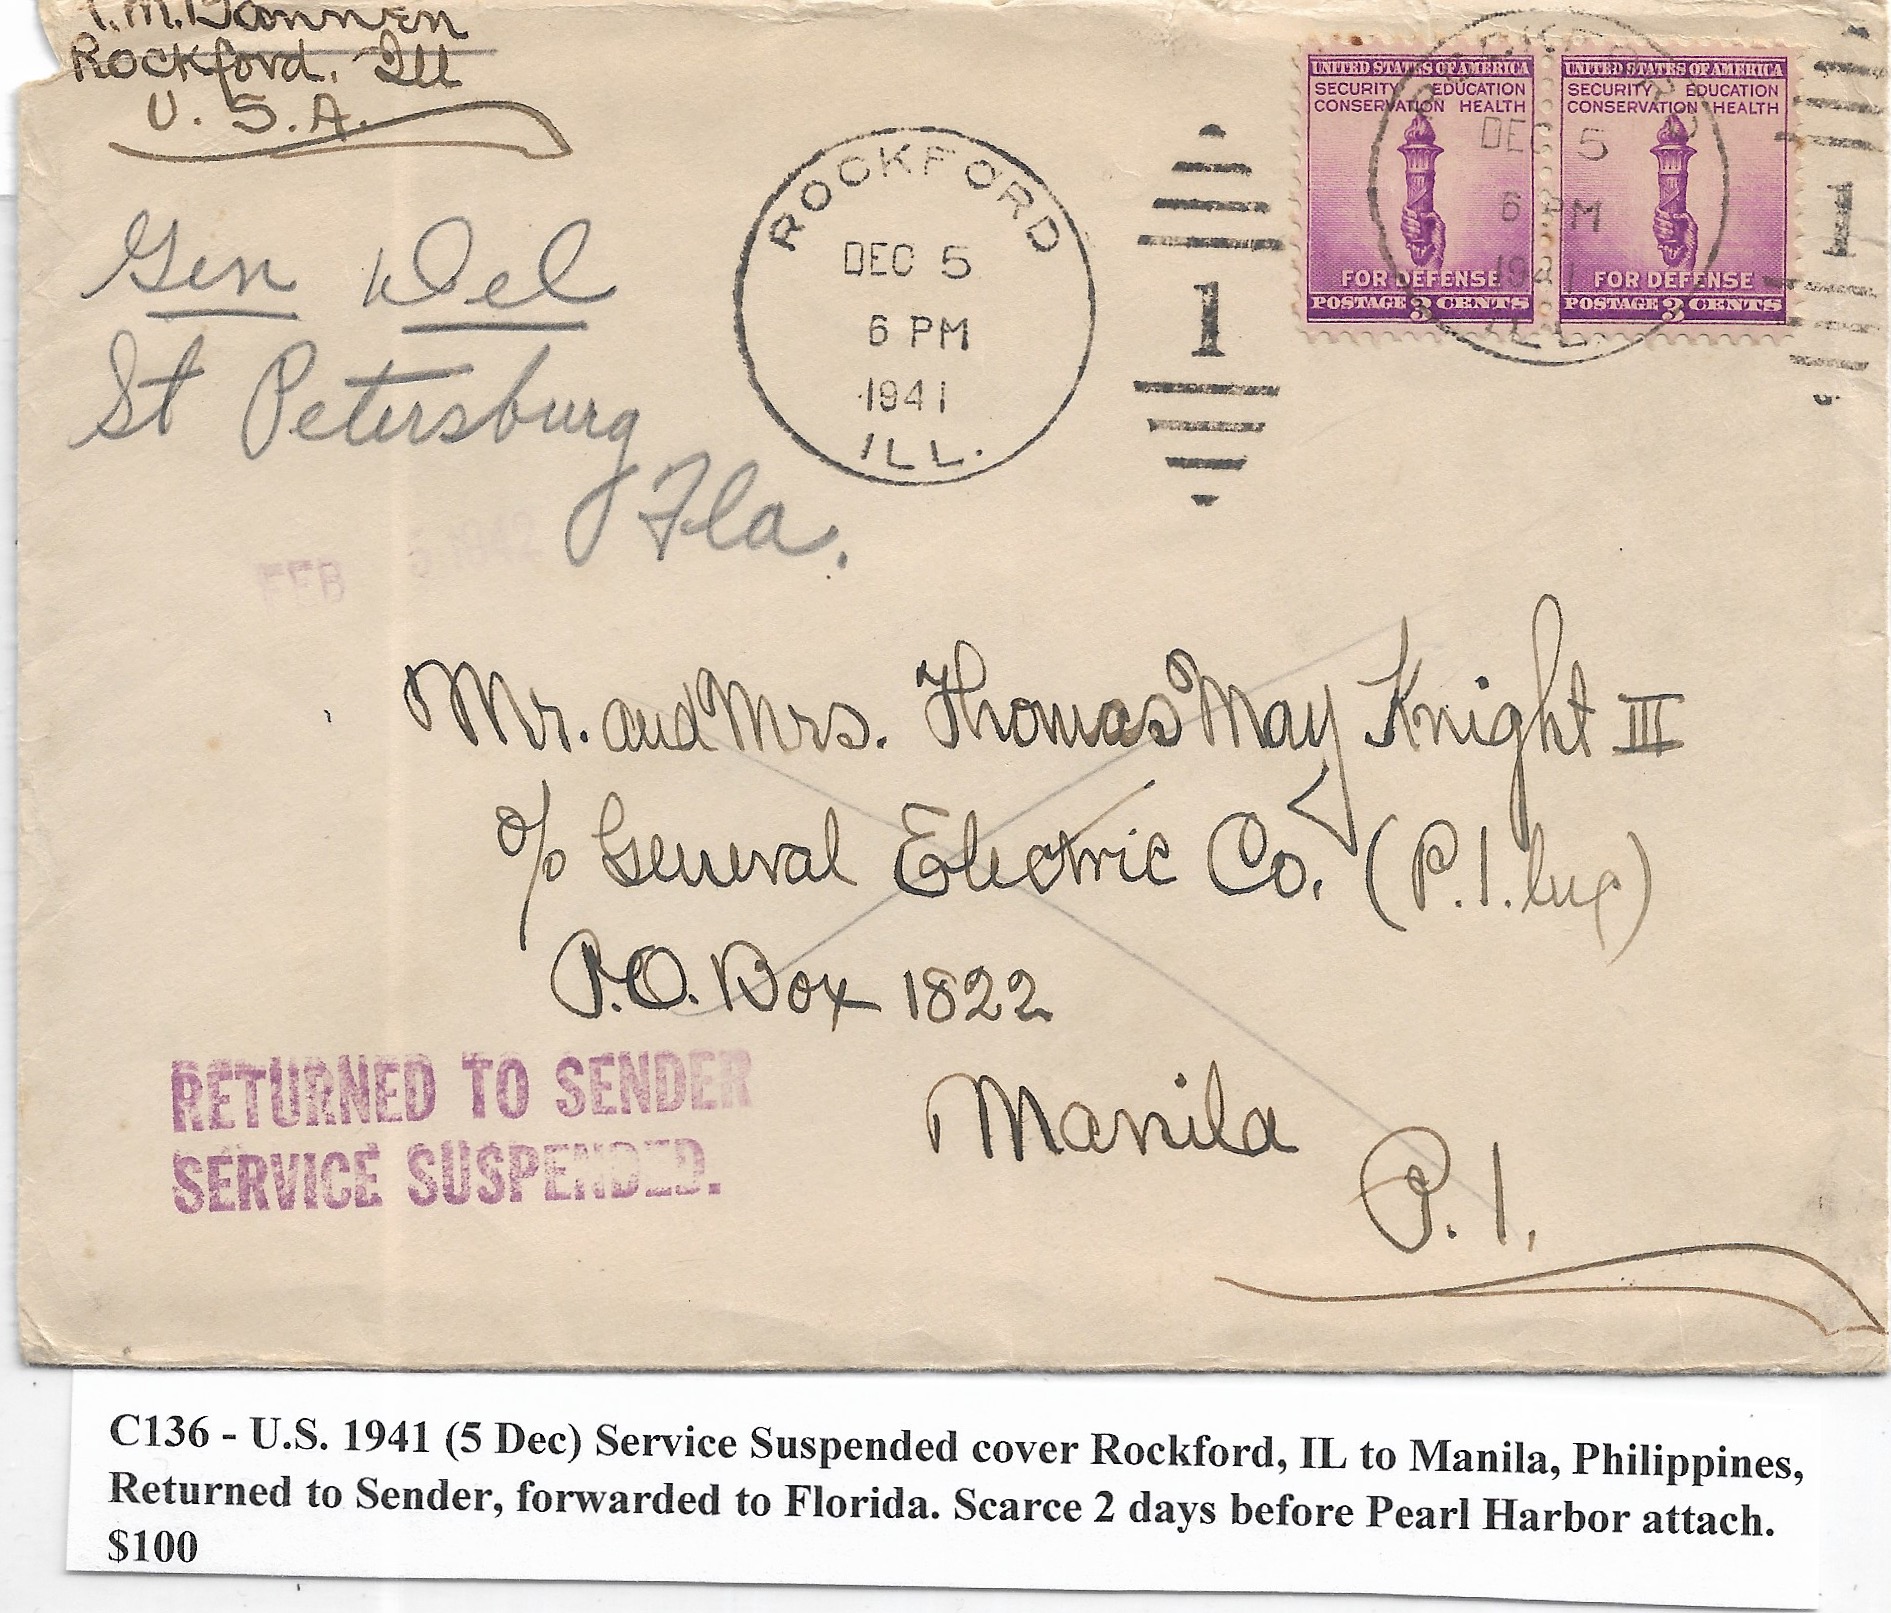 Rockford, Ill
U.S.A.
UNITED STATES OF AMERICA
SECURITY EDUCATION
CONSERVATION HEALTH
FOR DEFENSE
POSTAGE 3 CENTS
UNITED STATES OF AMERICA
SECURITY EDUCATION
CONSERVATION HEALTH
FOR DEFENSE
POSTAGE 3 CENTS
ROCKFORD
DEC 5
6 PM
1941
ILL.
1
DEC 5
6 PM
1941
ILL.
1
Gen Del
St Petersburg
Fla.
FEB 1942
Mr. and Mrs. Thomas May Knight III
c/o General Electric Co. (P.I. Inc)
P.O. Box 1822
Manila
P.I.
RETURNED TO SENDER
SERVICE SUSPENDED.
C136 - U.S. 1941 (5 Dec) Service Suspended cover Rockford, IL to Manila, Philippines,
Returned to Sender, forwarded to Florida. Scarce 2 days before Pearl Harbor attach.
$100